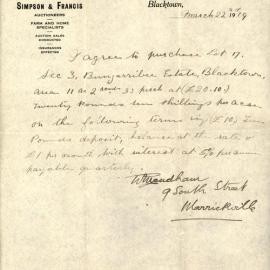 SIMPSON & FRANCIS
AUCTIONEERS
FARM AND HOME
SPECIALISTS
AUCTION SALES
CONDUCTED
INSURANCES
EFFECTED
Blacktown,
March 22nd 1919
I agree to purchase Lot 17.
Sec 3, Bungarribee Estate, Blacktown,
area 11 ac 2 33 at (£20.10)
Twenty Pounds ten shillings per acre
on the following terms viz (£10) Ten
Pounds deposit, balance at the rate of
£1 per month with interest at 5% per annum
payable quarterly.
9 South Street
Marrickville